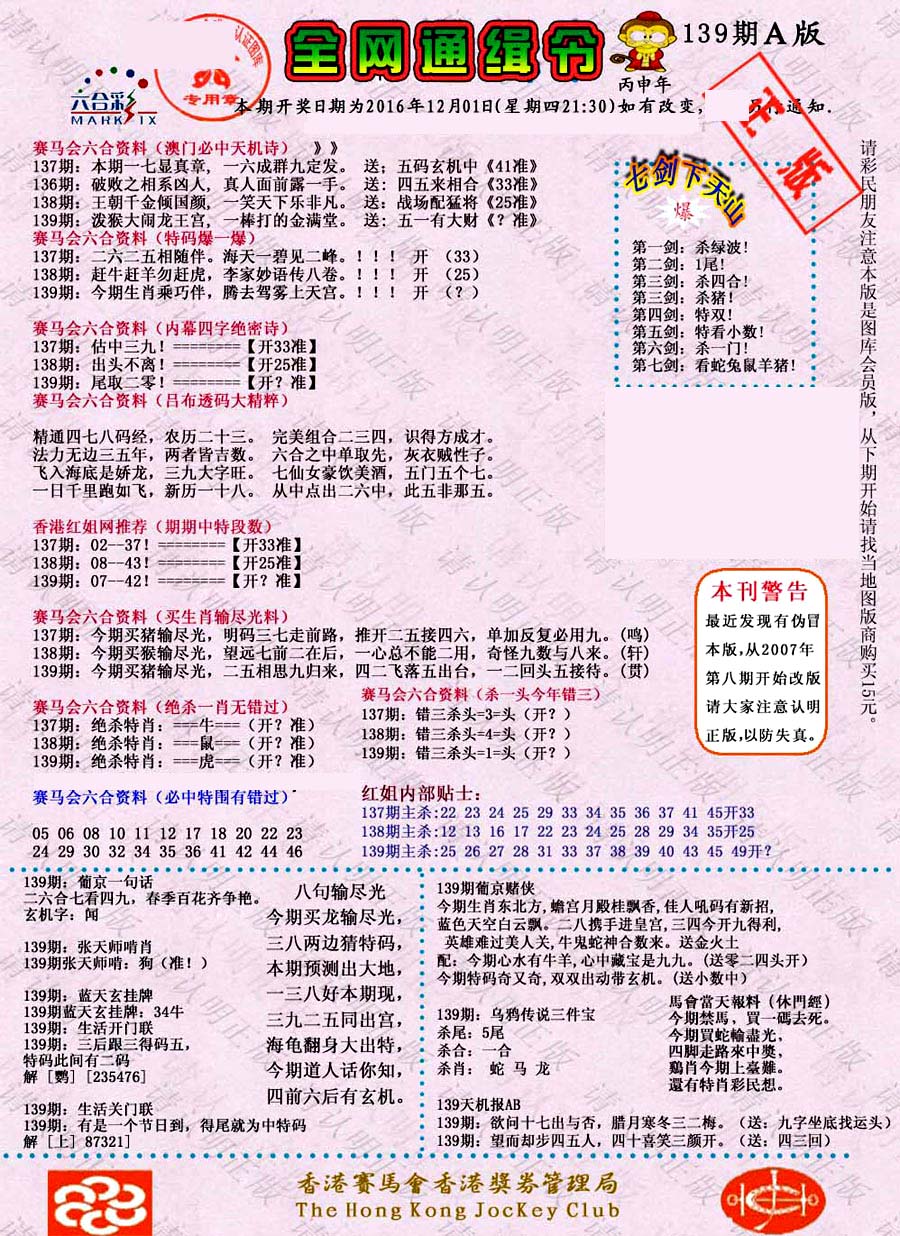 全网通缉令
139期A版
丙申年
认证图库
专用章
六合彩
MARK SIX
本期开奖日期为2016年12月01日(星期四21:30)如有改变,
通知.
正版
赛马会六合资料（澳门必中天机诗） 》》
137期：本期一七显真章，一六成群九定发。 送；五码玄机中《41准》
136期：破败之相系凶人，真人面前露一手。 送：四五来相合《33准》
138期：王朝千金倾国颜，一笑天下乐非凡。 送：战场配猛将《25准》
139期：泼猴大闹龙王宫，一棒打的金满堂。 送：五一有大财《？准》
赛马会六合资料（特码爆一爆）
137期：二六三五相随伴。海天一碧见二峰。！！！ 开 （33）
138期：赶牛赶羊勿赶虎，李家妙语传八卷。！！！ 开 （25）
139期：今期生肖乘巧伴，腾去驾雾上天宫。！！！ 开 （？）
赛马会六合资料（内幕四字绝密诗）
137期：估中三九！========【开33准】
138期：出头不离！========【开25准】
139期：尾取二零！========【开？准】
赛马会六合资料（吕布透码大精粹）
精通四七八码经，农历二十三。 完美组合二三四，识得方成才。
法力无边三五年，两者皆吉数。 六合之中单取先，灰衣贼性子。
飞入海底是娇龙，三九大字旺。 七仙女豪饮美酒，五门五个七。
一日千里跑如飞，新历一十八。 从中点出二六中，此五非那五。
香港红姐网推荐（期期中特段数）
137期：02--37！========【开33准】
138期：08--43！========【开25准】
139期：07--42！========【开？准】
赛马会六合资料（买生肖输尽光料）
137期：今期买猪输尽光，明码三七走前路，推开二五接四六，单加反复必用九。(鸣)
138期：今期买猴输尽光，望远七前二在后，一心总不能二用，奇怪九数与八来。(轩)
139期：今期买猪输尽光，二五相思九归来，四二飞落五出台，一二回头五接待。(贯)
赛马会六合资料（绝杀一肖无错过）
137期：绝杀特肖：===牛===（开？准）
138期：绝杀特肖：===鼠===（开？准）
139期：绝杀特肖：===虎===（开？准）
赛马会六合资料（杀一头今年错三）
137期：错三杀头=3=头（开？）
138期：错三杀头=4=头（开？）
139期：错三杀头=1=头（开？）
赛马会六合资料（必中特围有错过）
05 06 08 10 11 12 17 18 20 22 23
24 29 30 32 34 35 36 41 42 44 46
红姐内部贴士：
137期主杀:22 23 24 25 29 33 34 35 36 37 41 45开33
138期主杀:12 13 16 17 22 23 24 25 28 29 34 35开25
139期主杀:25 26 27 28 31 33 37 38 39 40 43 45 49开?
七剑下天山
爆
第一剑：杀绿波！
第二剑：1尾！
第三剑：杀四合！
第三剑：杀猪！
第四剑：特双！
第五剑：特看小数！
第六剑：杀一门！
第七剑：看蛇兔鼠羊猪！
请彩民朋友注意本版是图库会员版，从下期开始请找当地图版商购买15元。
本刊警告
最近发现有伪冒
本版,从2007年
第八期开始改版
请大家注意认明
正版,以防失真。
139期：葡京一句话
二六合七看四九，春季百花齐争艳。
玄机字：闻
139期：张天师啃肖
139期张天师啃：狗（准！）
139期：蓝天玄挂牌
139期蓝天玄挂牌：34牛
139期：生活开门联
139期：三后跟三得码五，
特码此间有二码
解［鹦］[235476]
139期：生活关门联
139期：有是一个节日到，得尾就为中特码
解［上］87321]
八句输尽光
今期买龙输尽光，
三八两边猜特码，
本期预测出大地，
一三八好本期现，
三九二五同出宫，
海龟翻身大出特，
今期道人话你知，
四前六后有玄机。
139期葡京赌侠
今期生肖东北方,蟾宫月殿桂飘香,佳人吼码有新招,
蓝色天空白云飘。二八携手进皇宫,三四今开九得利,
英雄难过美人关,牛鬼蛇神合数来。送金火土
配：今期心水有牛羊,心中藏宝是九九。(送零二四头开)
今期特码奇又奇,双双出动带玄机。(送小数中)
139期：乌鸦传说三件宝
杀尾：5尾
杀合：一合
杀肖： 蛇 马 龙
馬會當天報料（休門經）
今期禁馬，買一碼去死。
今期買蛇輸盡光，
四脚走路來中獎，
鷄肖今期上臺難。
還有特肖彩民想。
139天机报AB
139期：欲问十七出与否，腊月寒冬三二梅。（送：九字坐底找运头）
139期：望而却步四五人，四十喜笑三颜开。（送：四三回）
香港賽馬會香港獎券管理局
The Hong Kong JocKey Club
请认明正版